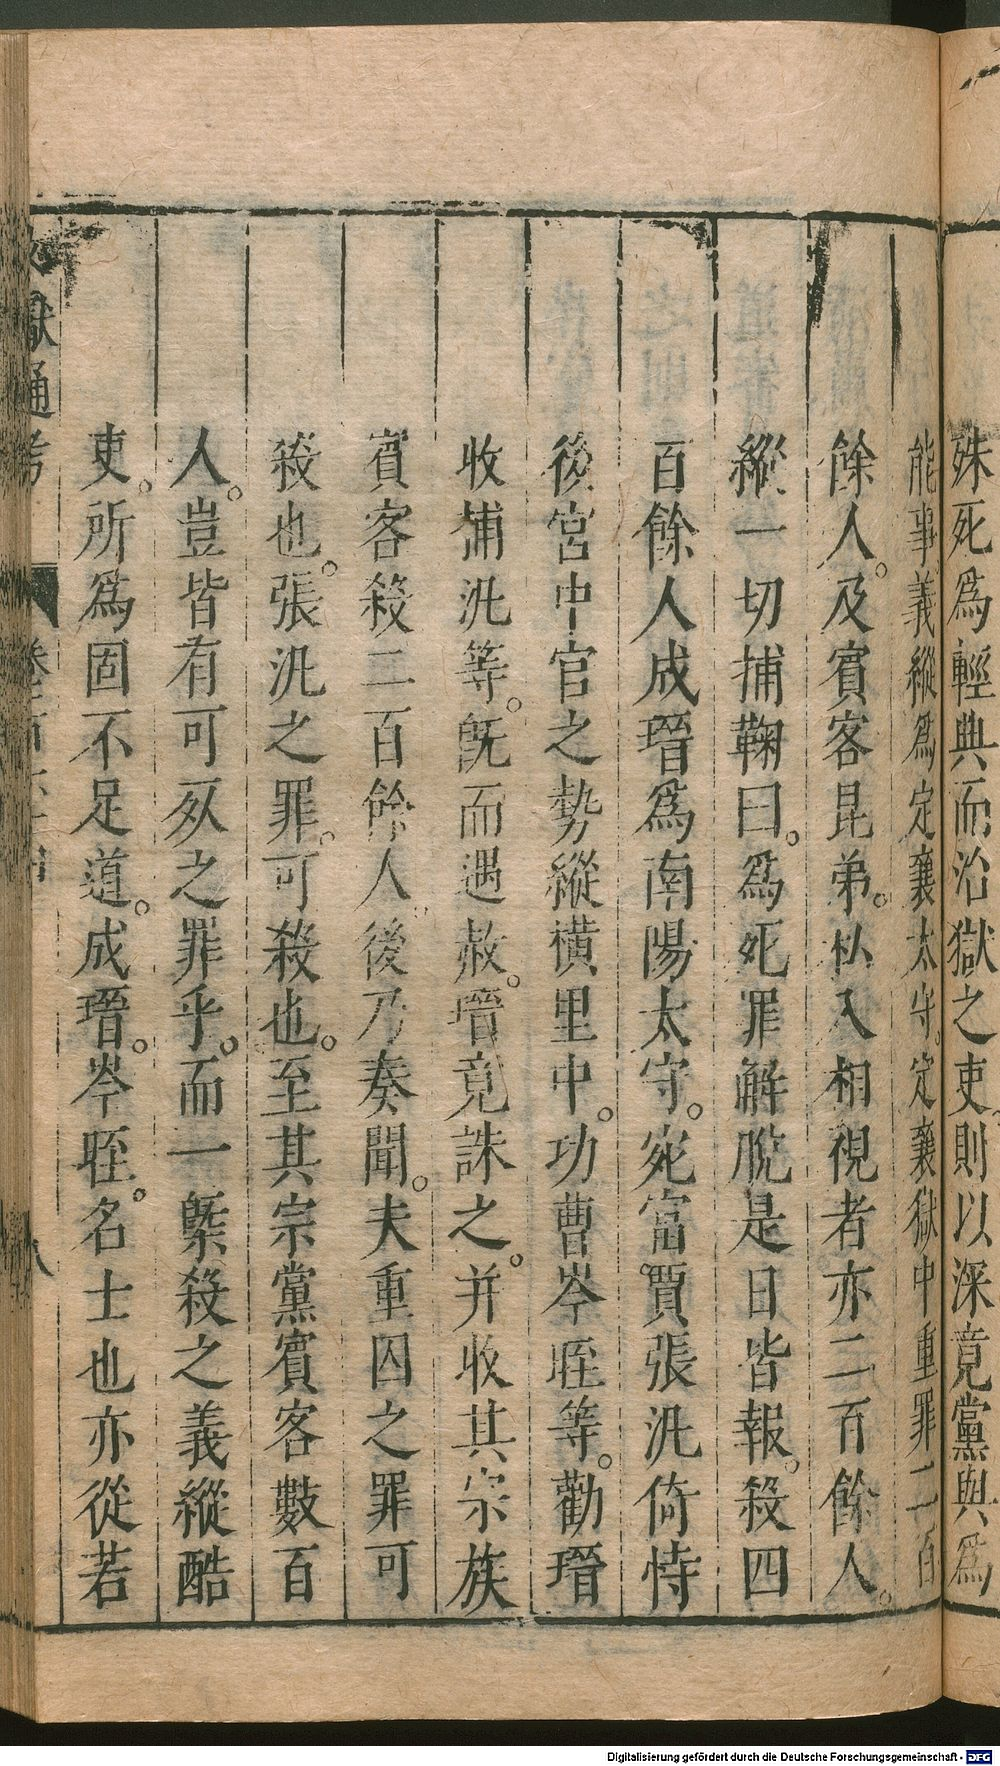 殊死爲輕典而治獄之吏則以深竟黨與爲
能事義縱爲定襄太守定襄獄中重罪二百
餘人及賓客昆弟私入相視者亦二百餘人
縱一切捕鞠曰爲死罪解脫是日皆報殺四
百餘人成瑨爲南陽太守宛富賈張汎倚恃
後宮中官之勢縱橫里中功曹岑晊等勸瑨
收捕汎等旣而遇赦瑨竟誅之并收其宗族
賓客殺二百餘人後乃奏聞夫重囚之罪可
殺也張汎之罪可殺也至其宗黨賓客數百
人豈皆有可死之罪乎而一槩殺之義縱酷
吏所爲固不足道成瑨岑晊名士也亦從若
獻通考
Digitalisierung gefördert durch die Deutsche Forschungsgemeinschaft - DFG